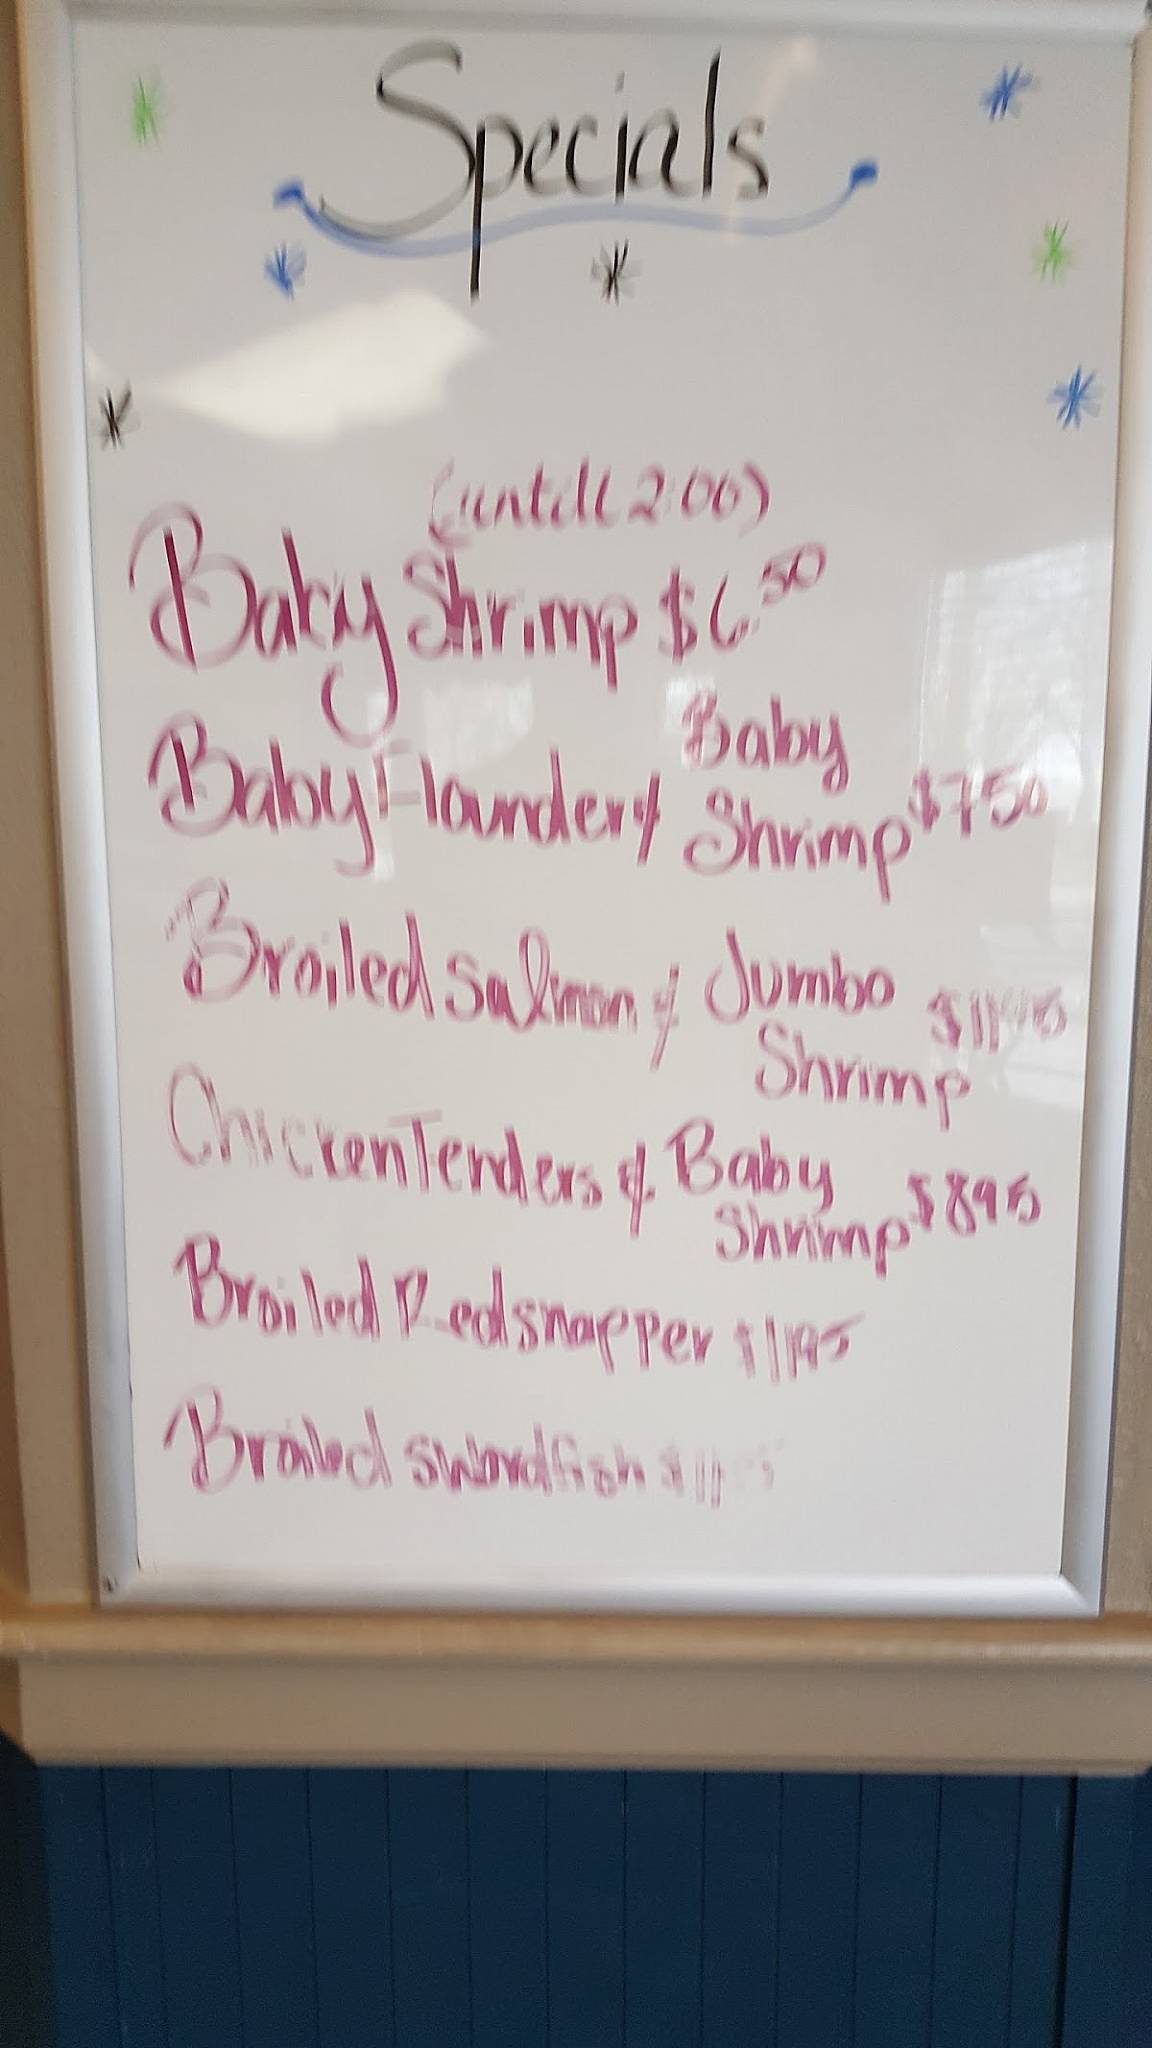 Specials
(until 2:00)
Baby Shrimp $6.50
Baby Flounder & Baby Shrimp $7.50
Broiled Salmon & Jumbo Shrimp $11.95
Chicken Tenders & Baby Shrimp $8.95
Broiled Redsnapper $11.95
Broiled swordfish